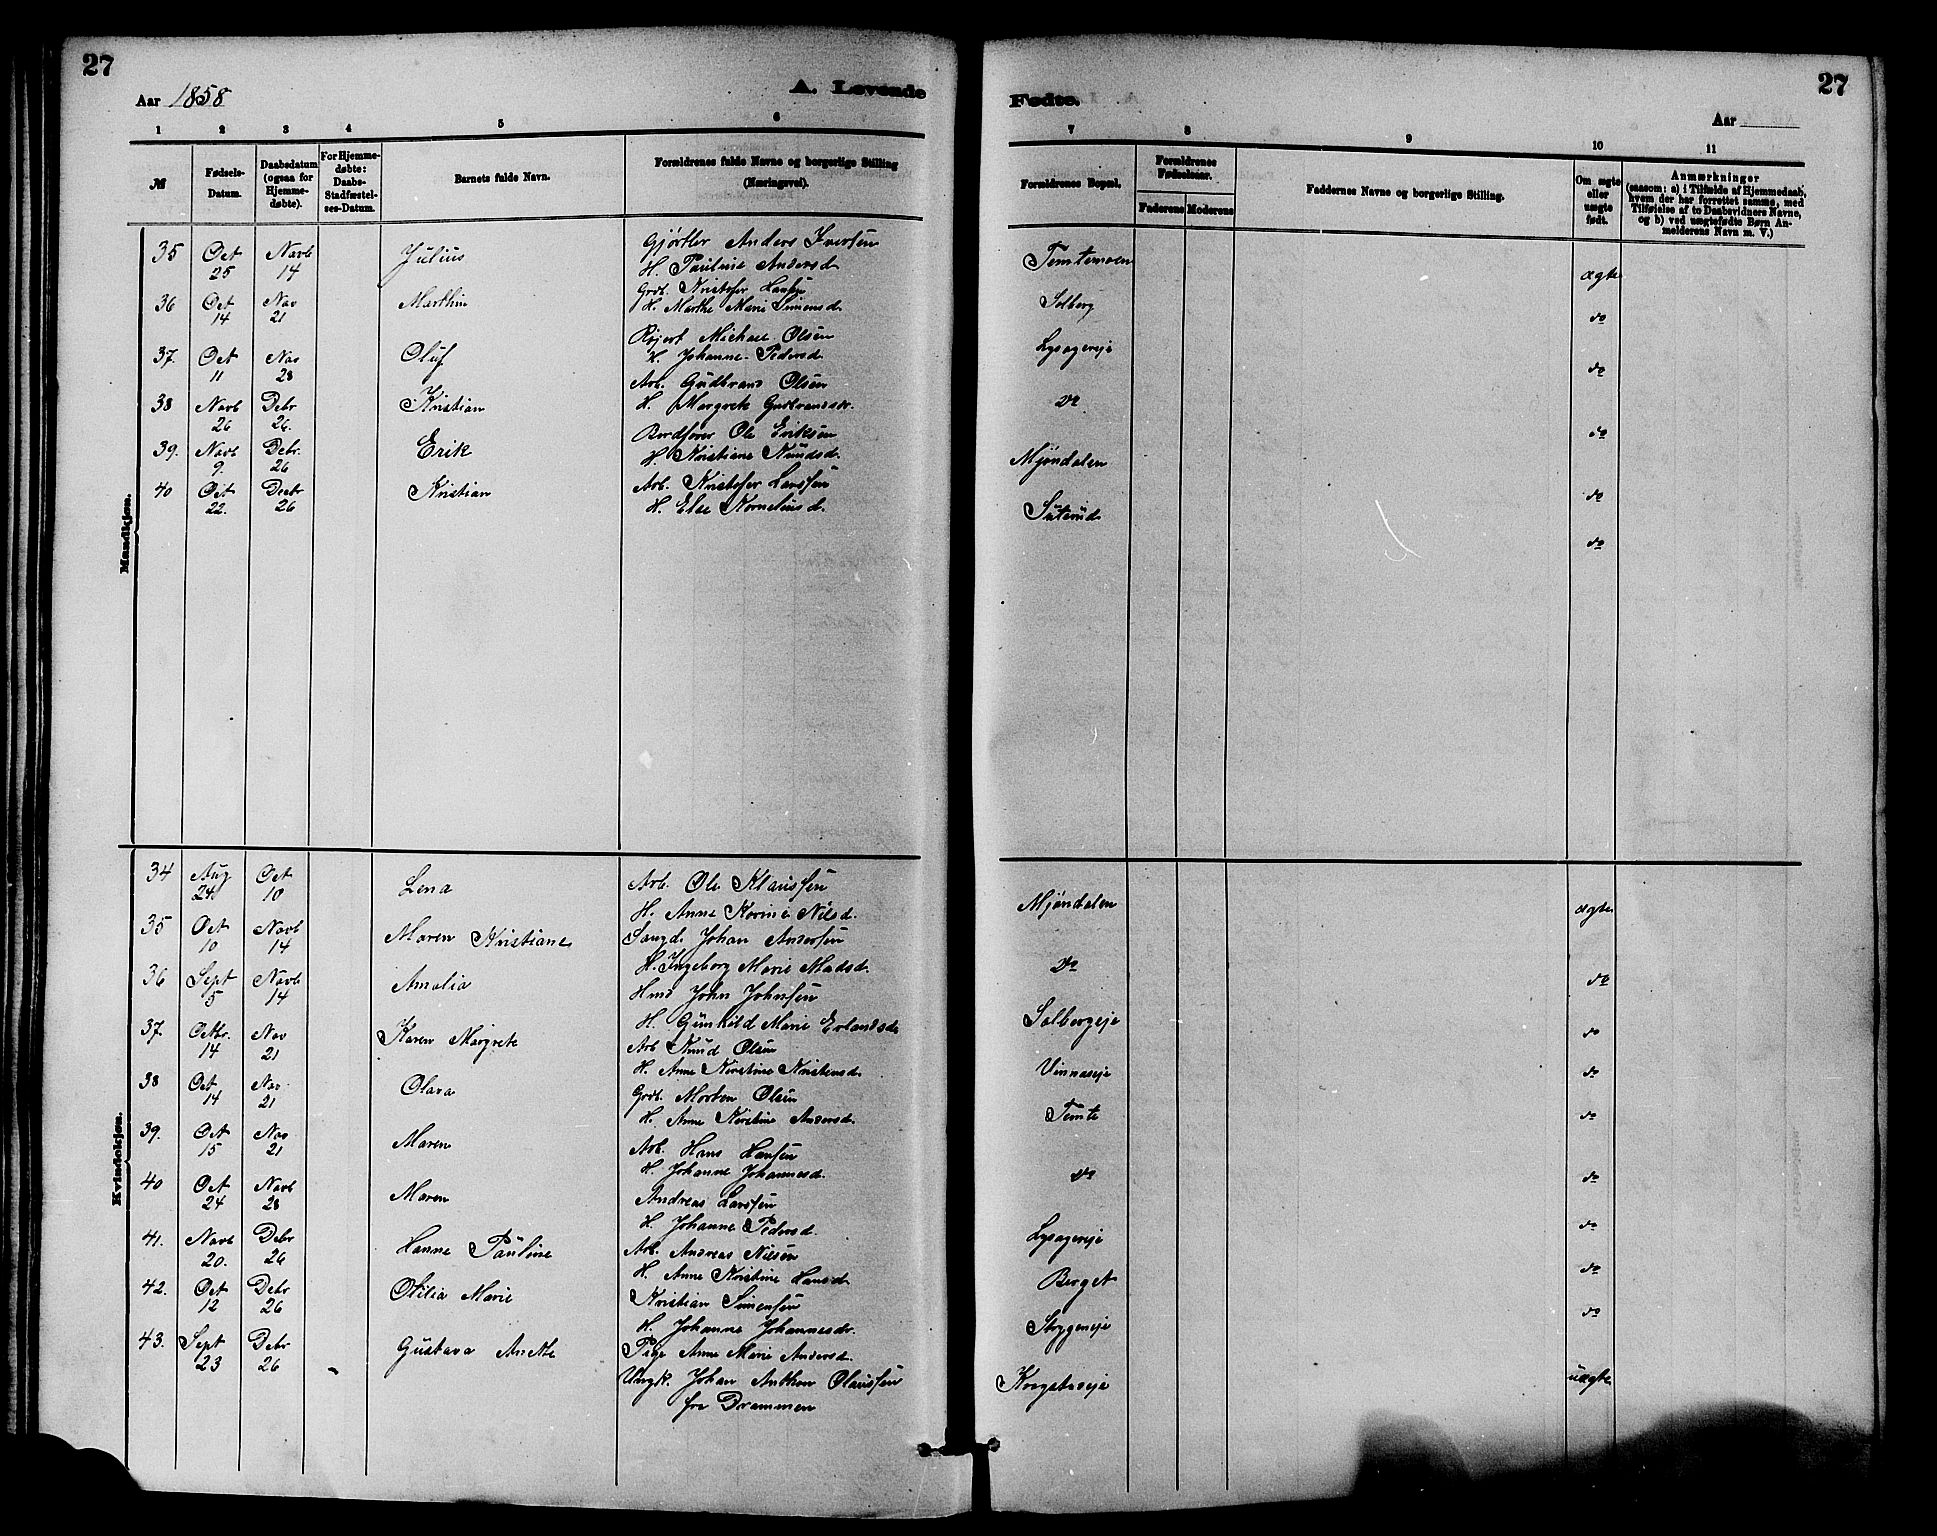 27
Aar 1858
A. Levende
1 2 3 4 5 6
№
Fødsels-Datum.
Daabsdatum (ogsaa for Hjemme-døbte).
For Hjemme-døbte: Daabs-Stadfæstel-ses-Datum.
Barnets fulde Navn.
Forældrenes fulde Navne og borgerlige Stilling (Næringsvei).
Mandkjøn.
35 Oct 25 Novb 14 Julius Gjørtler Anders Iversen
H. Pauline Andersd
36 Oct 14 Nov 21 Marthin Grdb. Kristofer Hansen
H. Marthe Marie Simensd
37. Oct 11 Nov 28 Oluf Michael Olsen
H. Johanne Pedersd
38 Novb 26 Debr 26. Kristian Arb. Gudbrand Olsen
H. Margrete Gudbrandsdr.
39. Novb 9. Debr. 26 Erik Bordfører Ole Eriksen
H. Kristiane Knudsd.
40 Oct 22. Decbr 26 Kristian Arb. Kristofer Larssen
H. Else Korneliusd.
Kvindekjøn.
34 Aug 24 Oct 10 Lena Arb. Ole Klaussen
H. Anne Korine Nilsd.
35 Oct 10 Novb 14 Maren Kristiane Saugd. Johan Andersen
H. Ingeborg Marie Madsd.
36 Sept 5 Novb 14 Amalia Hmd John Johnsen
H. Gunhild Marie Erlandsd
37. Octbr. 14 Nov 21 Karen Margrete Arb Knud Olsen
H. Anne Kirstine Kristensd.
38 Oct 14 Nov. 21 Olava Grdb. Morten Olsen
H. Anne Kirstine Andersd.
39. Oct 15 Nov 21 Maren Arb. Hans Hansen
H. Johanne Johannesd.
40 Oct 24 Novb 28 Maren Andreas Larssen
H. Johanne Pedersd.
41. Novb 20. Debr 26 Hanne Pauline Arb. Andreas Nilsen
H. Anne Kristine Hansd.
42. Oct 12 Debr 26 Otilia Marie Kristian Simensen
H. Johanne Johannesdr.
43. Sept 23 Debr 26 Gustava Anette Pige Anne Marie Andersd.
Ungk. Johan Anthon Olaussen
fra Drammen
27
Fødte.
Aar
7 8 9 10 11
Forældrenes Bopæl.
Forældrenes Fødselsaar.
Faderens Moderens
Faddernes Navne og borgerlige Stilling.
Om ægte eller uægte født.
Anmærkninger
(saasom: a) i Tilfælde af Hjemmedaab,
hvem der har forrettet samme, med
Tilføielse af to Daabsvidners Navne,
og b) ved uægtefødte Børn An-
melderens Navn m. V.)
Temtemoen ægte
Solberg do
Lysagereje do
do do
Mjøndalen do
Sæterud do
Mjøndalen ægte
do do
Solbergeje do
Vinnaseje do
Temte do
do do
Lysagereje do
Berget do
Stryggeneje do
uægte